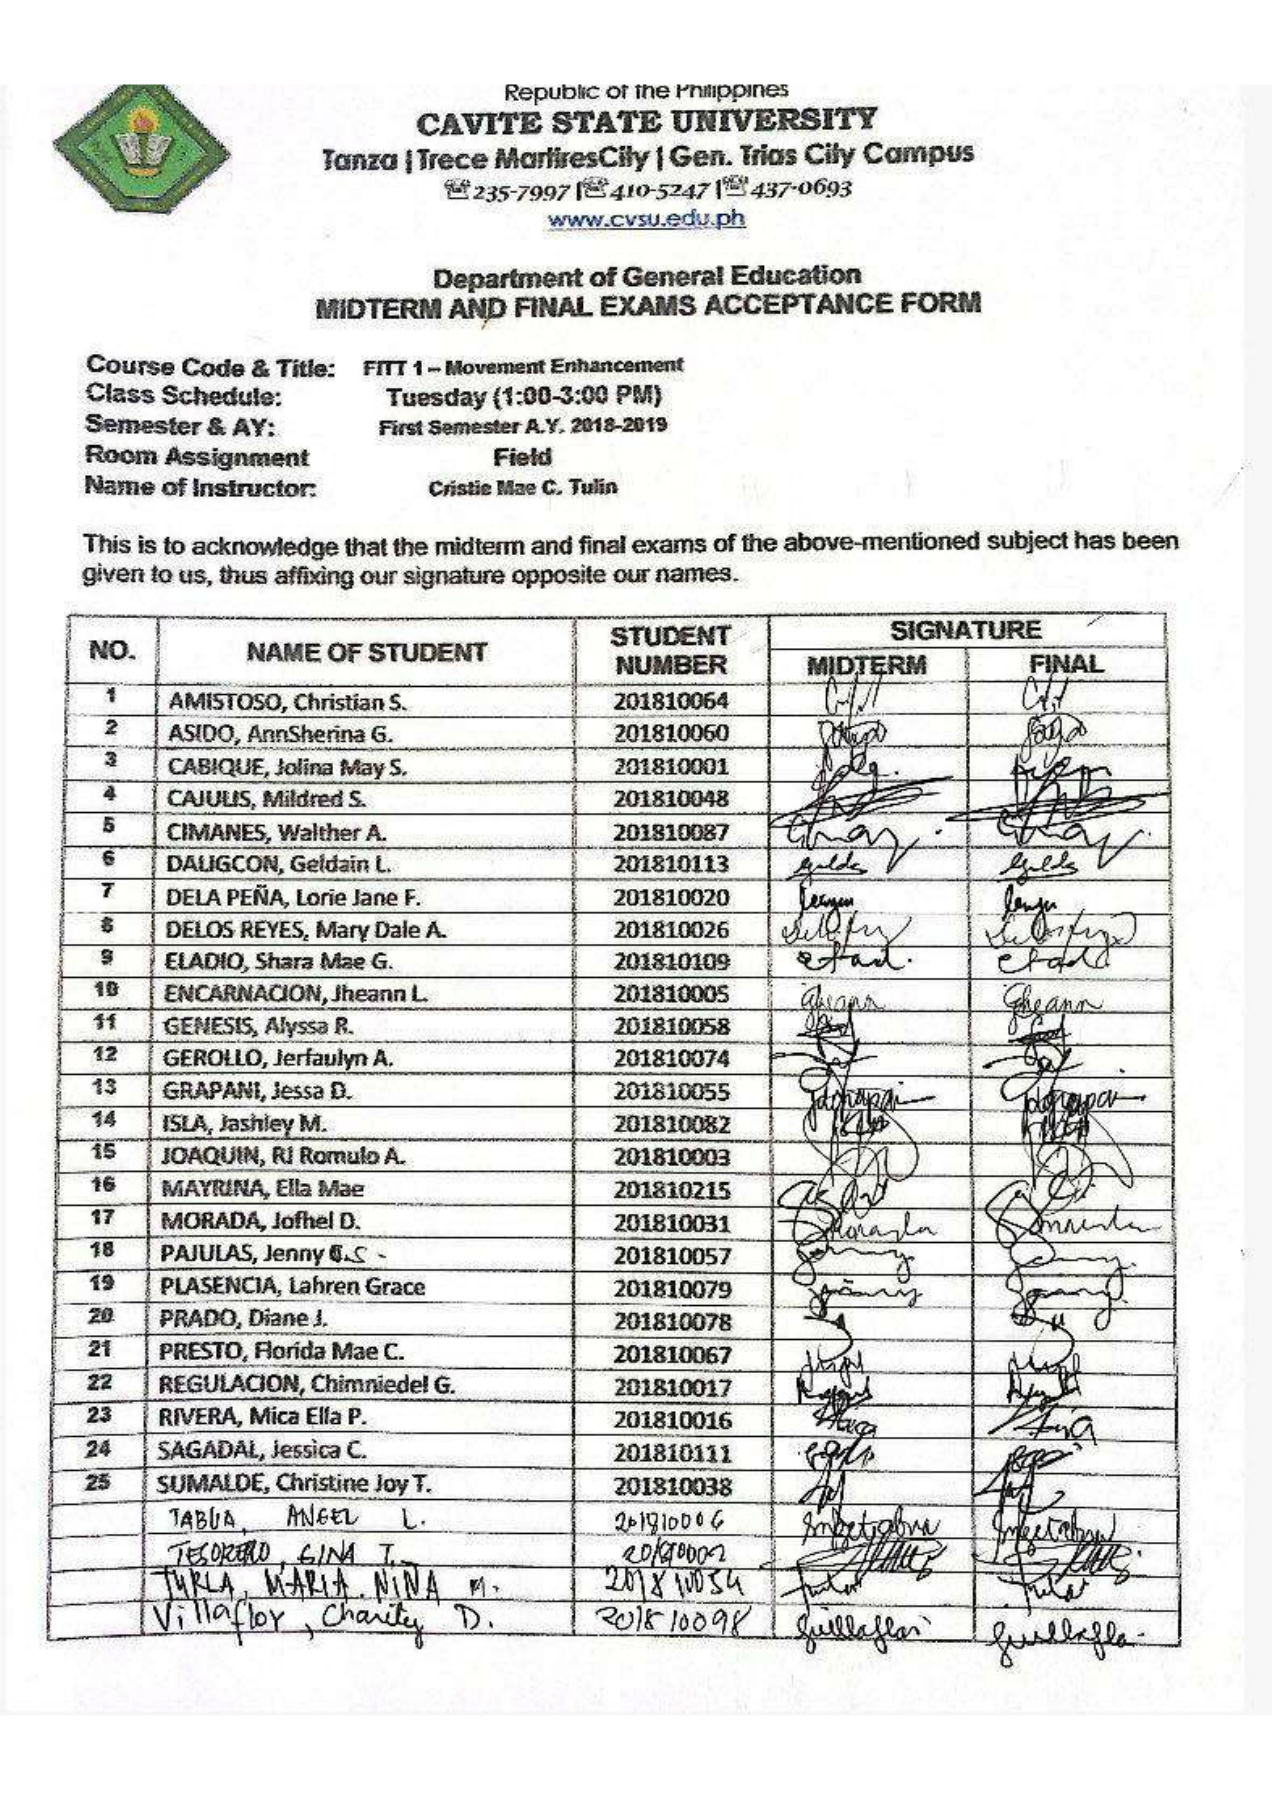 Republic of the Philippines
CAVITE STATE UNIVERSITY
Tanza | Trece MartiresCity | Gen. Trias City Campus
☎235-7997 |☎410-5247 |☎437-0693
www.cvsu.edu.ph
Department of General Education
MIDTERM AND FINAL EXAMS ACCEPTANCE FORM
Course Code & Title: FITT 1 – Movement Enhancement
Class Schedule: Tuesday (1:00-3:00 PM)
Semester & AY: First Semester A.Y. 2018-2019
Room Assignment Field
Name of Instructor: Cristie Mae C. Tulin
This is to acknowledge that the midterm and final exams of the above-mentioned subject has been
given to us, thus affixing our signature opposite our names.
NO. NAME OF STUDENT STUDENT NUMBER SIGNATURE
MIDTERM FINAL
1 AMISTOSO, Christian S. 201810064
2 ASIDO, AnnSherina G. 201810060
3 CABIQUE, Jolina May S. 201810001
4 CAJULIS, Mildred S. 201810048
5 CIMANES, Walther A. 201810087
6 DALIGCON, Geldain L. 201810113
7 DELA PEÑA, Lorie Jane F. 201810020
8 DELOS REYES, Mary Dale A. 201810026
9 ELADIO, Shara Mae G. 201810109
10 ENCARNACION, Jheann L. 201810005
11 GENESIS, Alyssa R. 201810058
12 GEROLLO, Jerfaulyn A. 201810074
13 GRAPANI, Jessa D. 201810055
14 ISLA, Jashley M. 201810082
15 JOAQUIN, RJ Romulo A. 201810003
16 MAYRINA, Ella Mae 201810215
17 MORADA, Jofhel D. 201810031
18 PAJULAS, Jenny C.S - 201810057
19 PLASENCIA, Lahren Grace 201810079
20 PRADO, Diane J. 201810078
21 PRESTO, Florida Mae C. 201810067
22 REGULACION, Chimniedel G. 201810017
23 RIVERA, Mica Ella P. 201810016
24 SAGADAL, Jessica C. 201810111
25 SUMALDE, Christine Joy T. 201810038
TABUA, ANGEL L. 201810006
TESORERO, GINA T. 201810002
TURLA, MARIA NINA M. 201810054
Villaflor, Charity D. 201810098